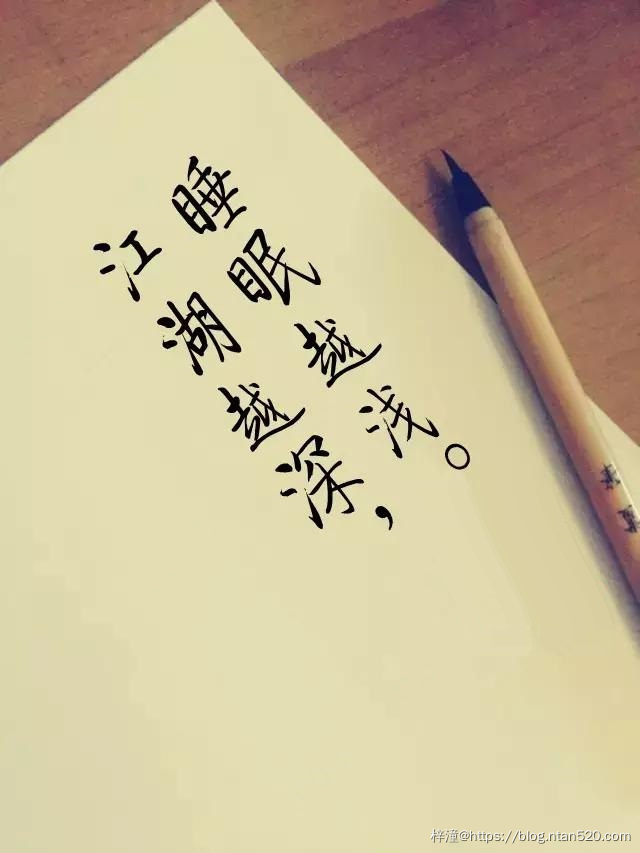 江湖越深，
睡眠越浅。
梓潼@https://blog.ntan520.com